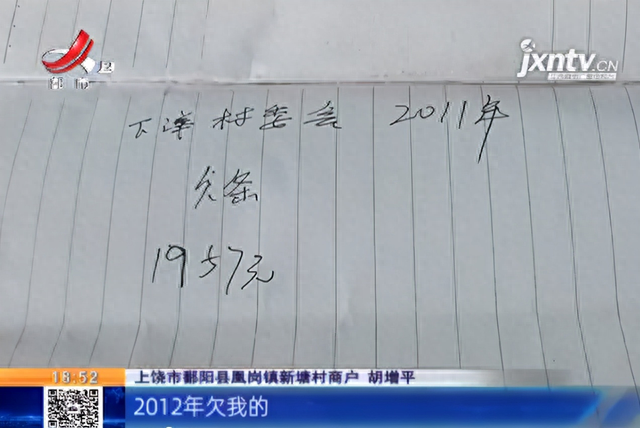 都市
jxntv.CN
下漳村委会 2011年
欠条
1957元
18:52 上饶市鄱阳县凰岗镇新塘村商户 胡增平
2012年欠我的